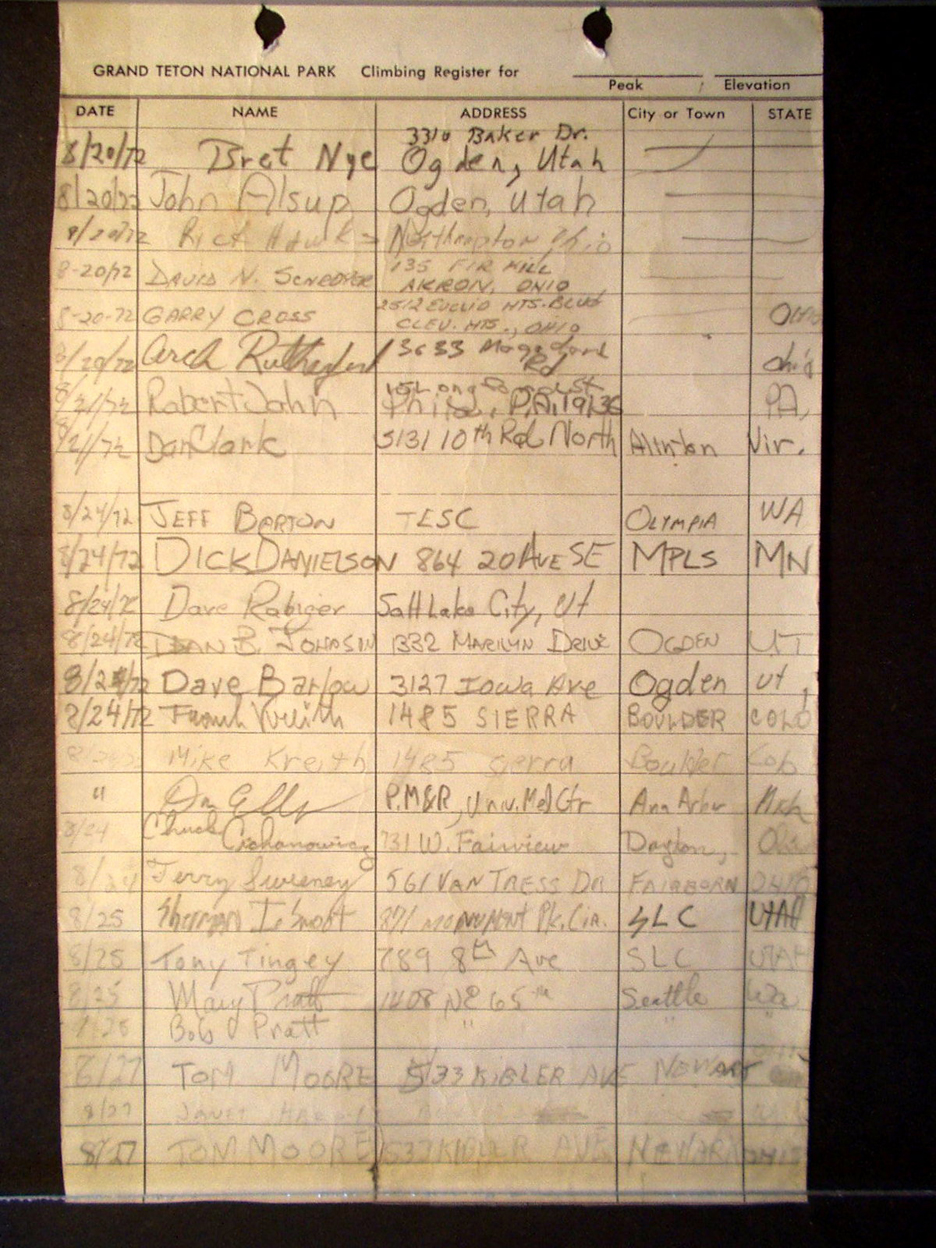 GRAND TETON NATIONAL PARK Climbing Register for
Peak Elevation
DATE NAME ADDRESS City or Town STATE
3310 Baker Dr.
8/20/72 Bret Nye Ogden, Utah
8/20/72 John Alsup Ogden, Utah
8/20/72 Rick Northampton Ohio
135 FIR HILL
8-20/72 DAVID N. AKRON, OHIO
2512 EUCLID HTS. BLVD
8-20-72 GARRY CROSS CLEV. HTS., OHIO Ohio
8/20/72 Arch Rutherford 3633 Rd Ohio
St
8/21/72 Robert John Phila, P.A. 19136 PA,
8/21/72 Dan Clark 5131 10th Rd North Alinton Vir.
8/24/72 JEFF BARTON TESC OLYMPIA WA
8/24/72 DICK DANIELSON 864 20 AVE SE MPLS MN
8/24/72 Dave Rabiger Salt Lake City, Ut
8/24/72 DEAN B. JOHNSON 1332 MARILYN DRIVE OGDEN UT
8/24/72 Dave Barlow 3127 Iowa Ave Ogden Ut,
8/24/72 Frank 1485 SIERRA BOULDER COLO
Mike Kreith 1485 Sierra Boulder Colo
" P.M&R, Univ. Med Ctr Ann Arbor Mich
8/24 Chuck Cichanowicz 731 W. Fairview Dayton,
8/24 Terry Sweeney 561 VAN TRESS DR FAIRBORN OHIO
8/25 Sherman 871 MONUMENT PK. CIR. SLC UTAH
8/25 Tony Tingey 789 8th Ave SLC UTAH
8/25 Mary Pratt 1408 NE 65th Seattle Wa
Bob Pratt " " "
8/27 TOM MOORE 533 KIBLER AVE NEWARK
8/27 JANET
8/27 TOM MOORE 533 KIBLER AVE NEWARK OHIO